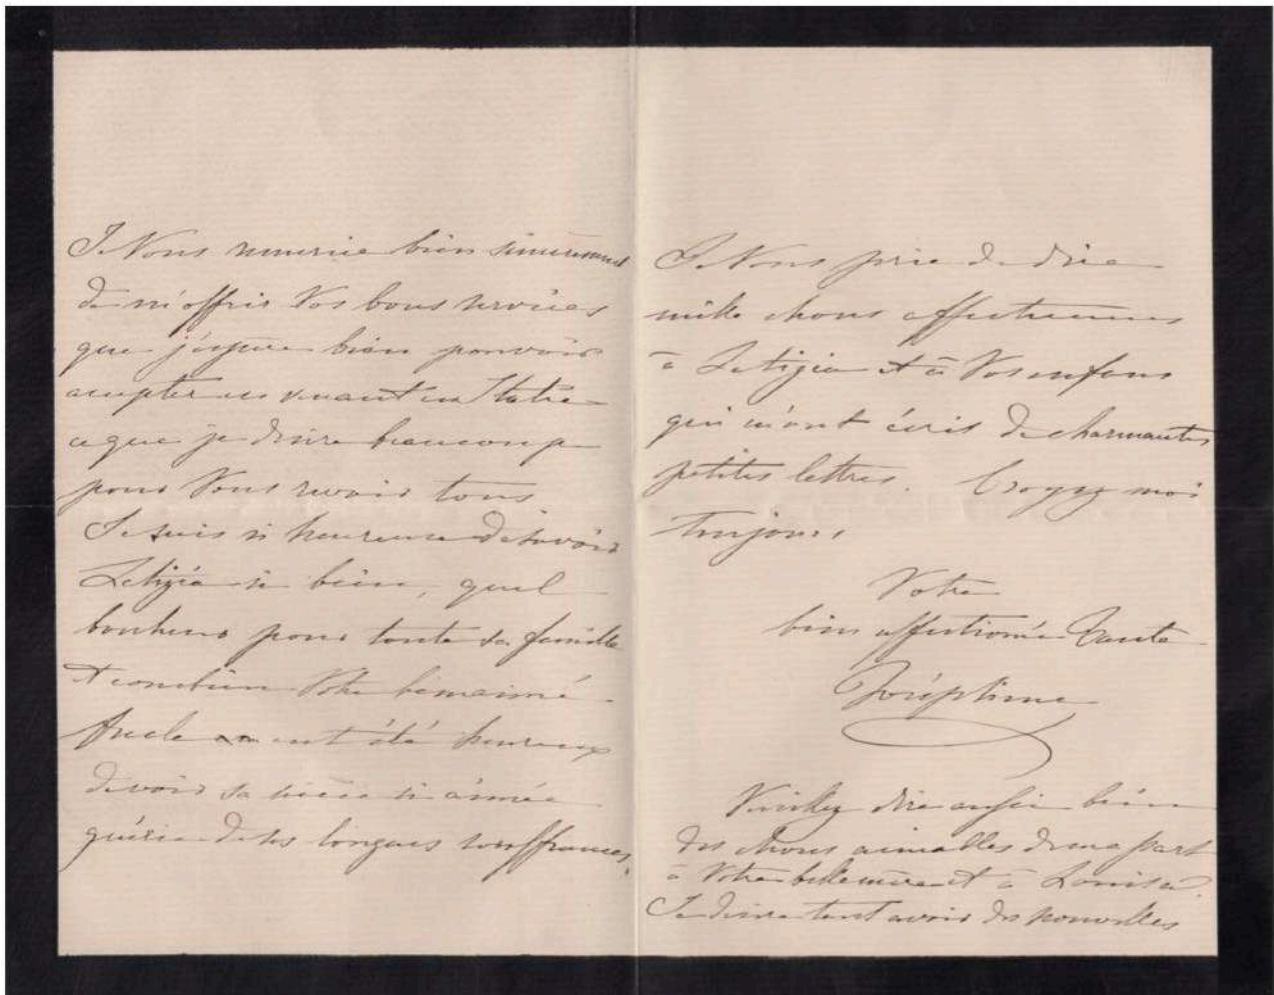 Je Vous remercie bien sincèrement
de m'offrir Vos bons services
que j'espère bien pouvoir
accepter en venant en Italie
ce que je désire beaucoup
pour Vous revoir tous
Je suis si heureuse de savoir
Letizia si bien, quel
bonheur pour toute sa famille
et combien Votre bienaimé
Oncle eut été heureux
de voir sa nièce si aimée
guérie de ses longues souffrances.
Je Vous prie de dire
mille choses affectueuses
à Letizia et à Vos enfans
qui m'ont écris de charmantes
petites lettres. Croyez moi
toujours
Votre
bien affectionée Tante
Joséphine
Veuillez dire aussi bien
des choses aimables de ma part
à Votre bellemère et à Louisa.
Je désire tant avoir des nouvelles